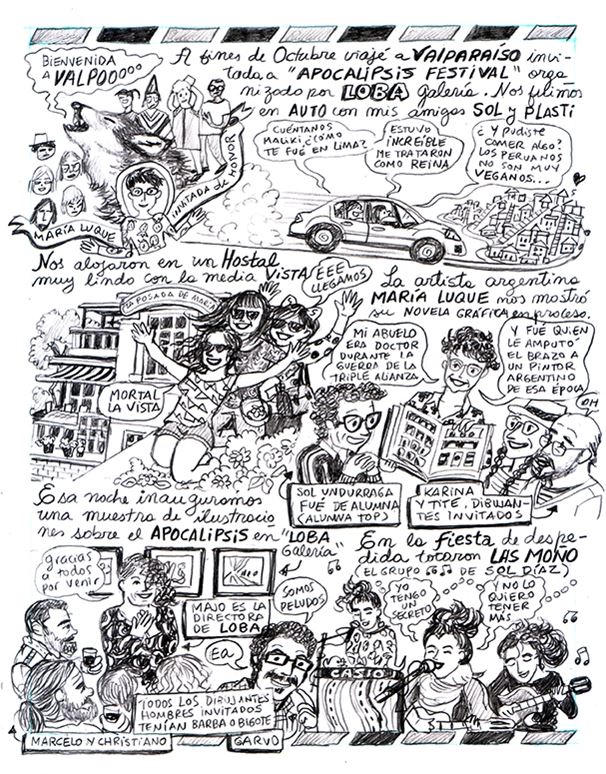 BIENVENIDA
A
VALPOOOOO
A fines de Octubre viajé a VALPARAÍSO invi-
tada a "APOCALIPSIS FESTIVAL" orga-
nizado por LOBA galería. Nos fuimos
en AUTO con mis amigas SOL y PLASTI
CUÉNTANOS
MALIKI, ¿CÓMO
TE FUE EN LIMA?
ESTUVO
INCREÍBLE
ME TRATARON
COMO REINA
¿Y PUDISTE
COMER ALGO?
LOS PERUANOS
NO SON MUY
VEGANOS...
MARÍA LUQUE
INVITADA DE
HONOR
Nos alojaron en un Hostal
muy lindo con la media VISTA
EEEE
LLEGAMOS
LA POSADA DE
MORTAL
LA VISTA
La artista argentina
MARÍA LUQUE nos mostró
su NOVELA GRÁFICA en proceso.
MI ABUELO
ERA DOCTOR
DURANTE LA
GUERRA DE LA
TRIPLE ALIANZA
Y FUE QUIEN
LE AMPUTÓ
EL BRAZO A
UN PINTOR
ARGENTINO
DE ESA ÉPOCA
OH
SOL UNDURRAGA
FUE DE ALUMNA
(ALUMNA TOP)
KARINA
Y TITE, DIBUJAN-
TES INVITADOS
Esa noche inauguramos
una muestra de ilustracio
nes sobre el APOCALIPSIS en "LOBA
Galería"
gracias
a todos
por venir
MAJO ES LA
DIRECTORA
DE LOBA
EA
SOMOS
PELUDOS
TODOS LOS DIBUJANTES
HOMBRES INVITADOS
TENÍAN BARBA O BIGOTE
MARCELO Y CHRISTIANO
GARVO
En la fiesta de despe-
dida tocaron LAS MOÑO
(EL GRUPO DE SOL DÍAZ)
YO
TENGO
UN
SECRETO
Y NO LO
QUIERO
TENER
MÁS
CASIO